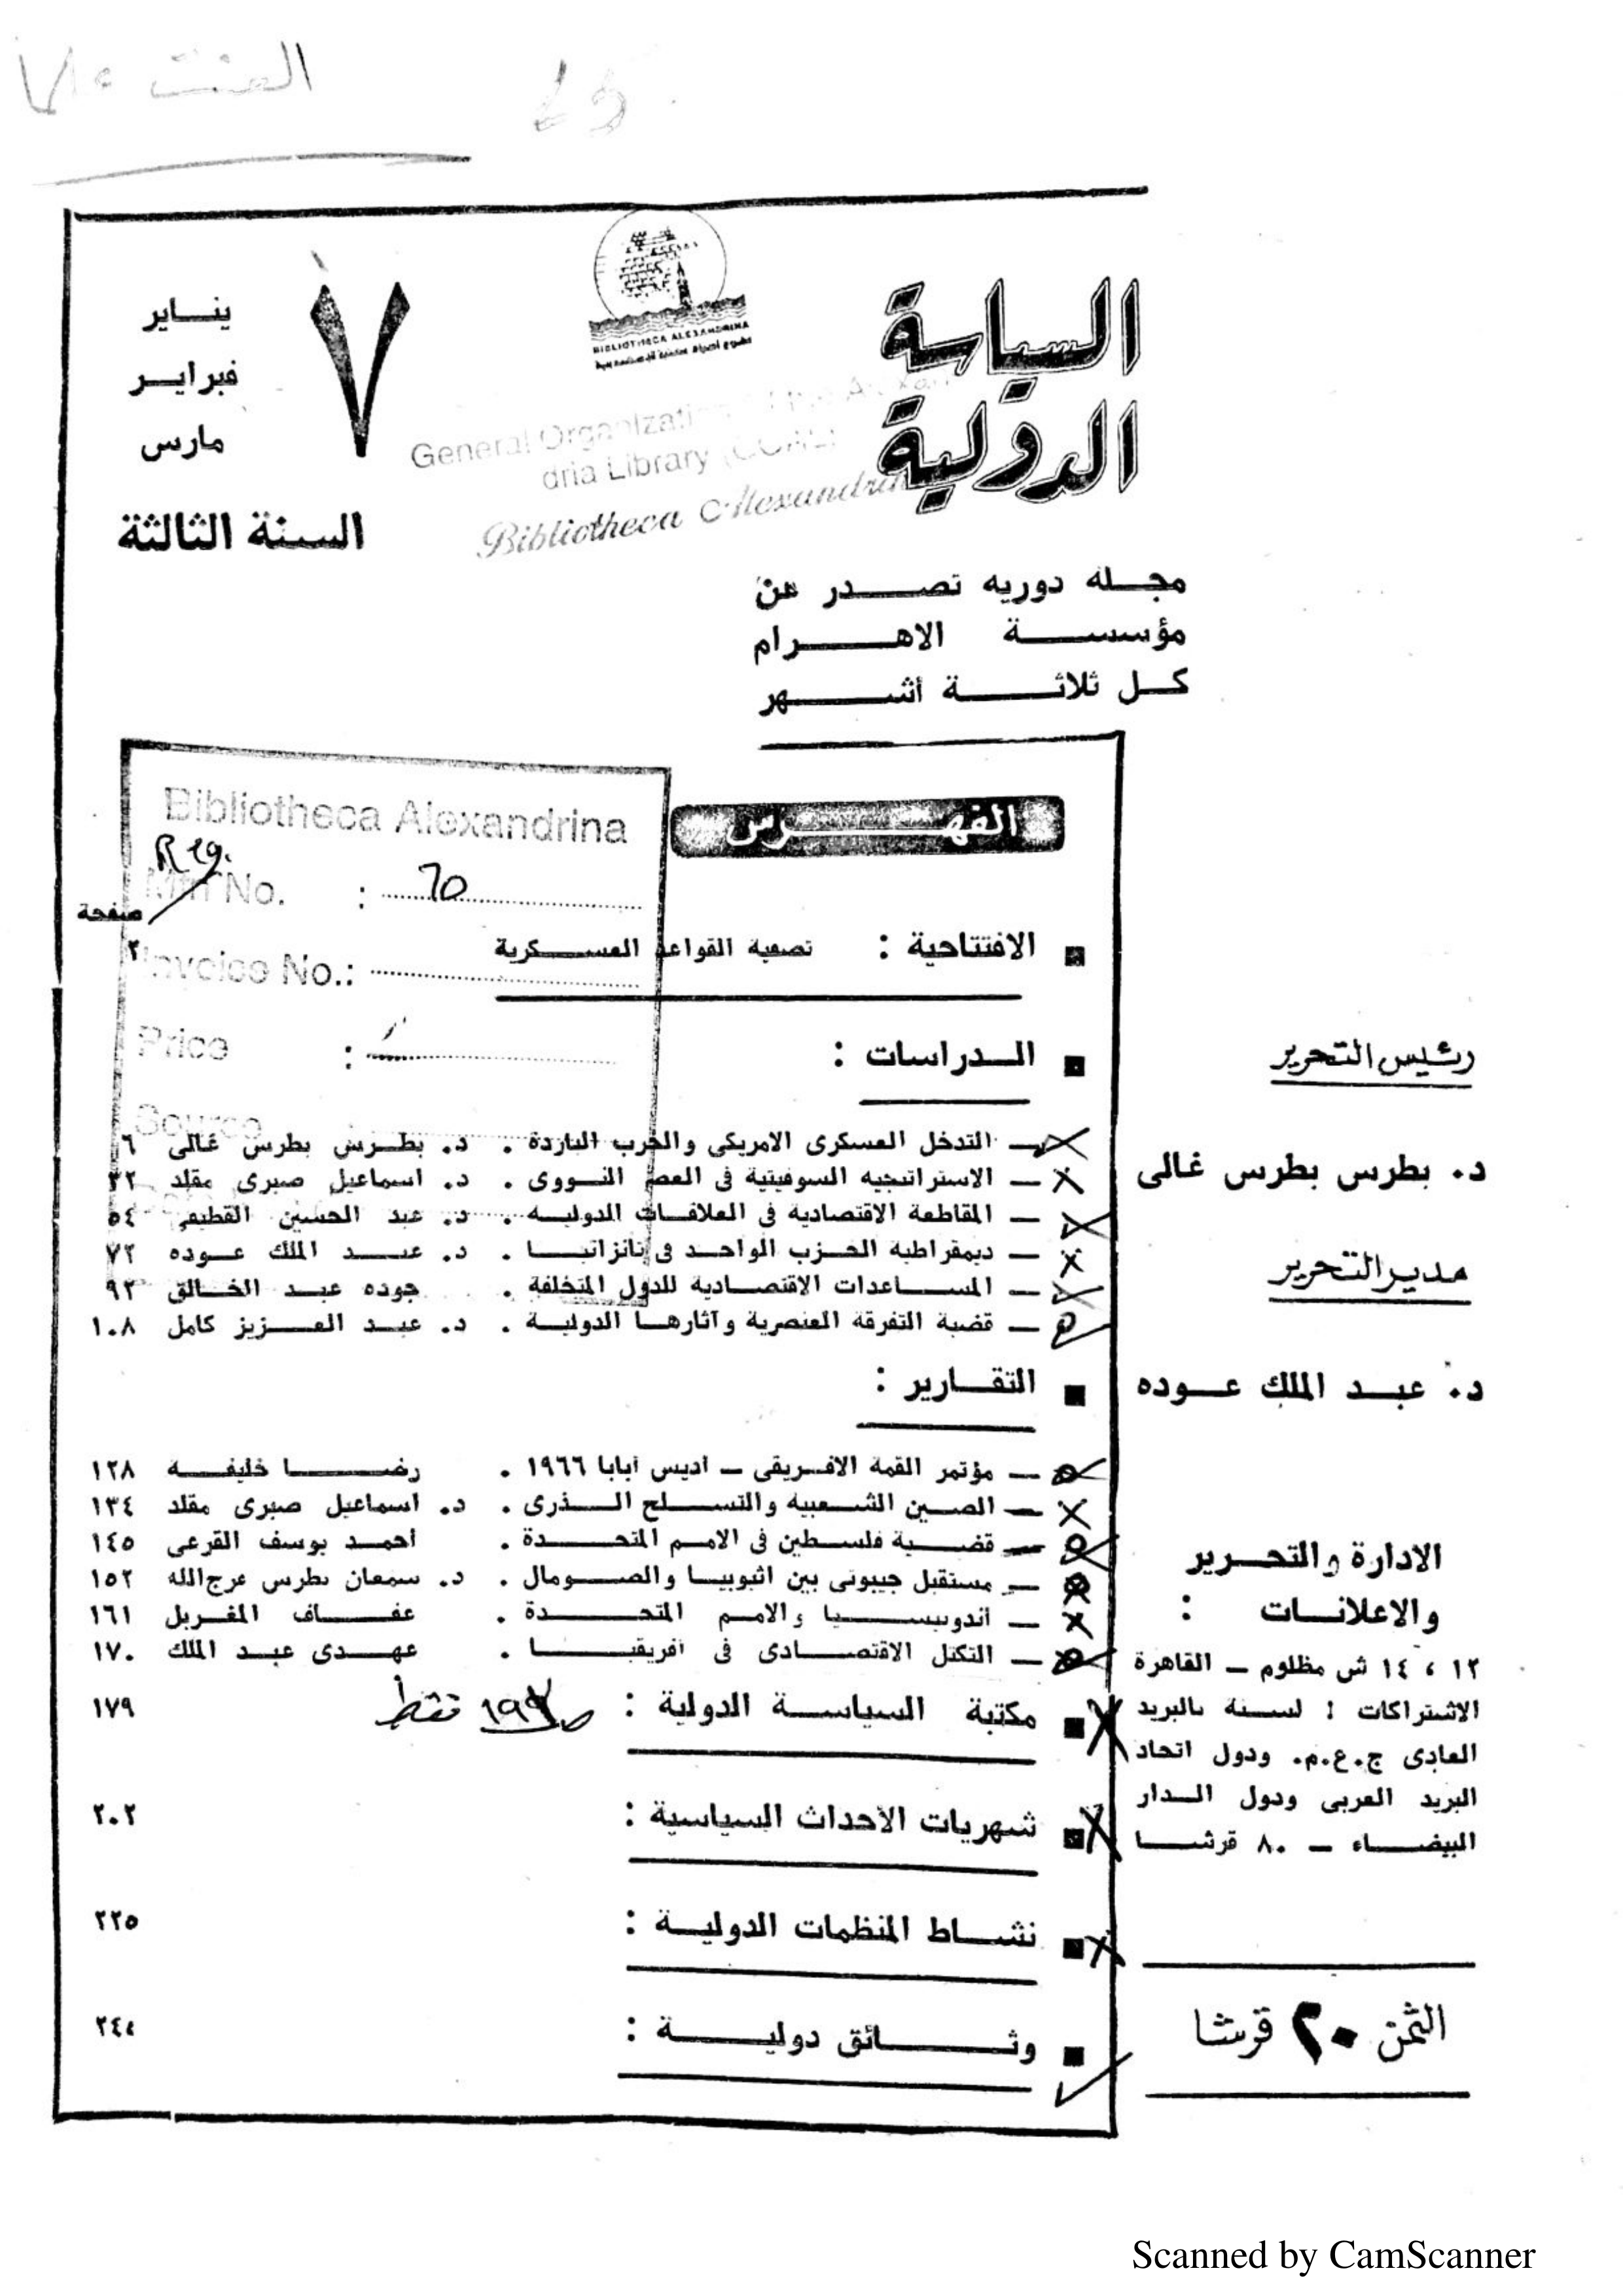 السياسة
الدولية
٧
يناير
فبراير
مارس
السنة الثالثة
BIBLIOTHECA ALEXANDRINA
General Organization
dria Library
Bibliotheca Alexandrina
مجلة دورية تصدر عن
مؤسسة الاهرام
كل ثلاثة أشهر
Bibliotheca Alexandrina
Reg.
No. : 70
Invoice No.:
Price :
Source
الفهرس
صفحة
الافتتاحية : تصفية القواعد العسكرية ٢
الدراسات :
— التدخل العسكرى الامريكى والحرب الباردة . د. بطرس بطرس غالى ٦
— الاستراتيجيه السوفيتية فى العصر النووى . د. اسماعيل صبرى مقلد ٣٢
— المقاطعة الاقتصادية فى العلاقات الدولية . د. عبد الحسين القطيفى ٥٤
— ديمقراطية الحزب الواحد فى تانزانيا . د. عبد الملك عوده ٧٢
— المساعدات الاقتصادية للدول المتخلفة . جوده عبد الخالق ٩٢
— قضية التفرقة العنصرية وآثارها الدولية . د. عبد العزيز كامل ١٠٨
التقارير :
— مؤتمر القمة الافريقى — اديس ابابا ١٩٦٦ . رضا خليفه ١٢٨
— الصين الشعبية والتسلح الذرى . د. اسماعيل صبرى مقلد ١٣٤
— قضية فلسطين فى الامم المتحدة . احمد يوسف القرعى ١٤٥
— مستقبل جيبوتى بين اثيوبيا والصومال . د. سمعان بطرس فرج الله ١٥٢
— اندونيسيا والامم المتحدة . عفاف المغربل ١٦١
— التكتل الاقتصادى فى افريقيا . عهدى عبد الملك ١٧٠
مكتبة السياسة الدولية : فقط ١٧٩
شهريات الأحداث السياسية : ٢٠٢
نشاط المنظمات الدولية : ٢٢٥
وثائق دولية :
رئيس التحرير
د. بطرس بطرس غالى
مدير التحرير
د. عبد الملك عوده
الادارة والتحرير
والاعلانات :
١٢ ، ١٤ ش مظلوم — القاهرة
الاشتراكات : لسنة بالبريد
العادى ج.ع.م. ودول اتحاد
البريد العربى ودول الدار
البيضاء — ٨٠ قرشا
الثمن ٢٠ قرشا
Scanned by CamScanner